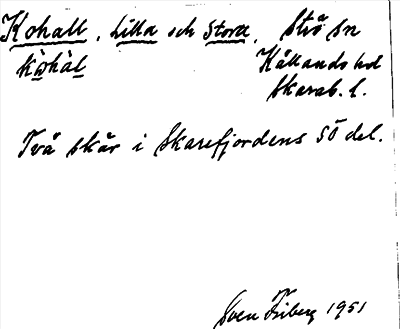 Kohall, Lilla och Stora, Strö sn
kωhàl Kållands hd
Skarab. l.
Två skär i Skarefjordens SÖ del.
Sven Friberg 1951